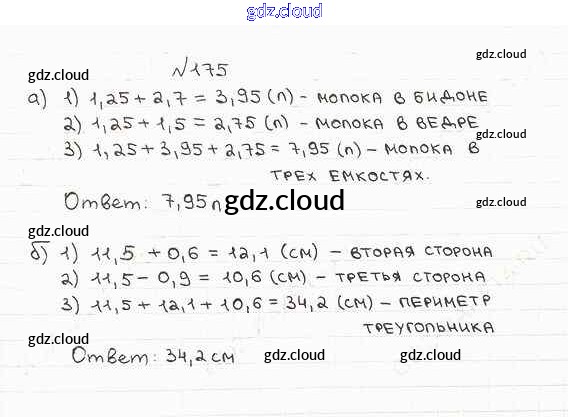 gdz.cloud
№175
gdz.cloud
gdz.cloud
а) 1) 1,25 + 2,7 = 3,95 (л) - молока в бидоне
2) 1,25 + 1,5 = 2,75 (л) - молока в ведре
3) 1,25 + 3,95 + 2,75 = 7,95 (л) - молока в
трех емкостях.
gdz.cloud
gdz.cloud
Ответ: 7,95 л
gdz.cloud
б) 1) 11,5 + 0,6 = 12,1 (см) - вторая сторона
2) 11,5 - 0,9 = 10,6 (см) - третья сторона
3) 11,5 + 12,1 + 10,6 = 34,2 (см) - периметр
треугольника
gdz.cloud
Ответ: 34,2 см
gdz.cloud
gdz.cloud